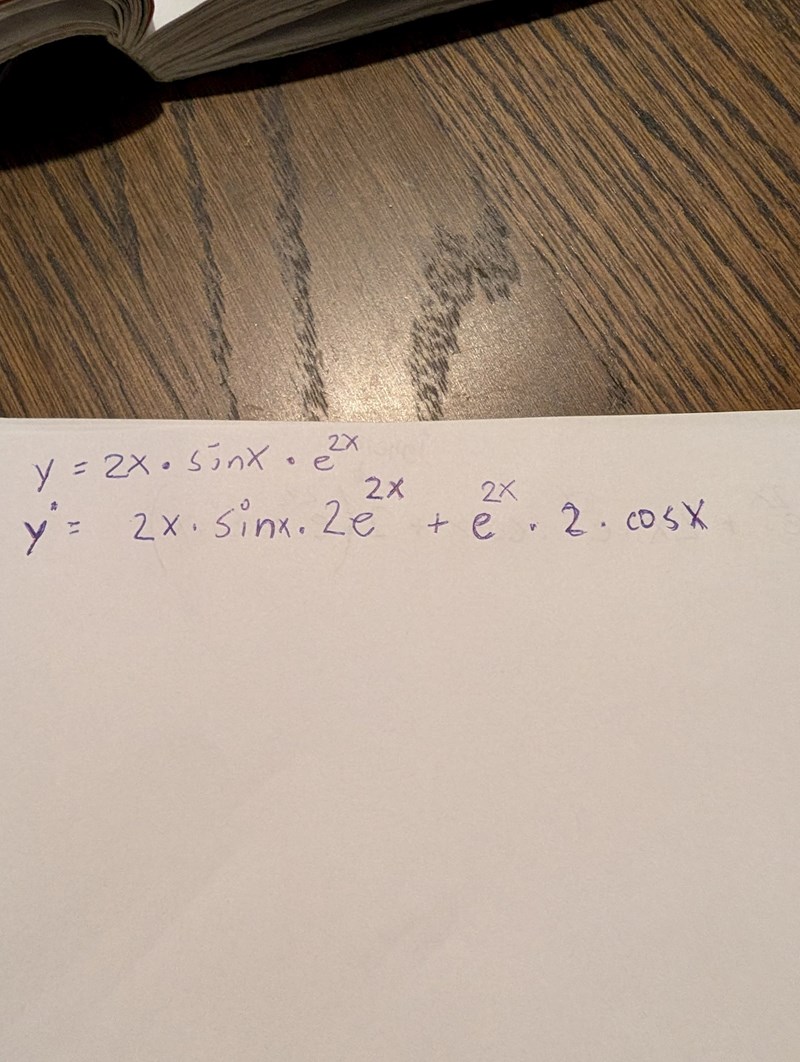 y = 2x · sinx · e^2x
y' = 2x · sinx · 2e^2x + e^2x · 2 · cosx